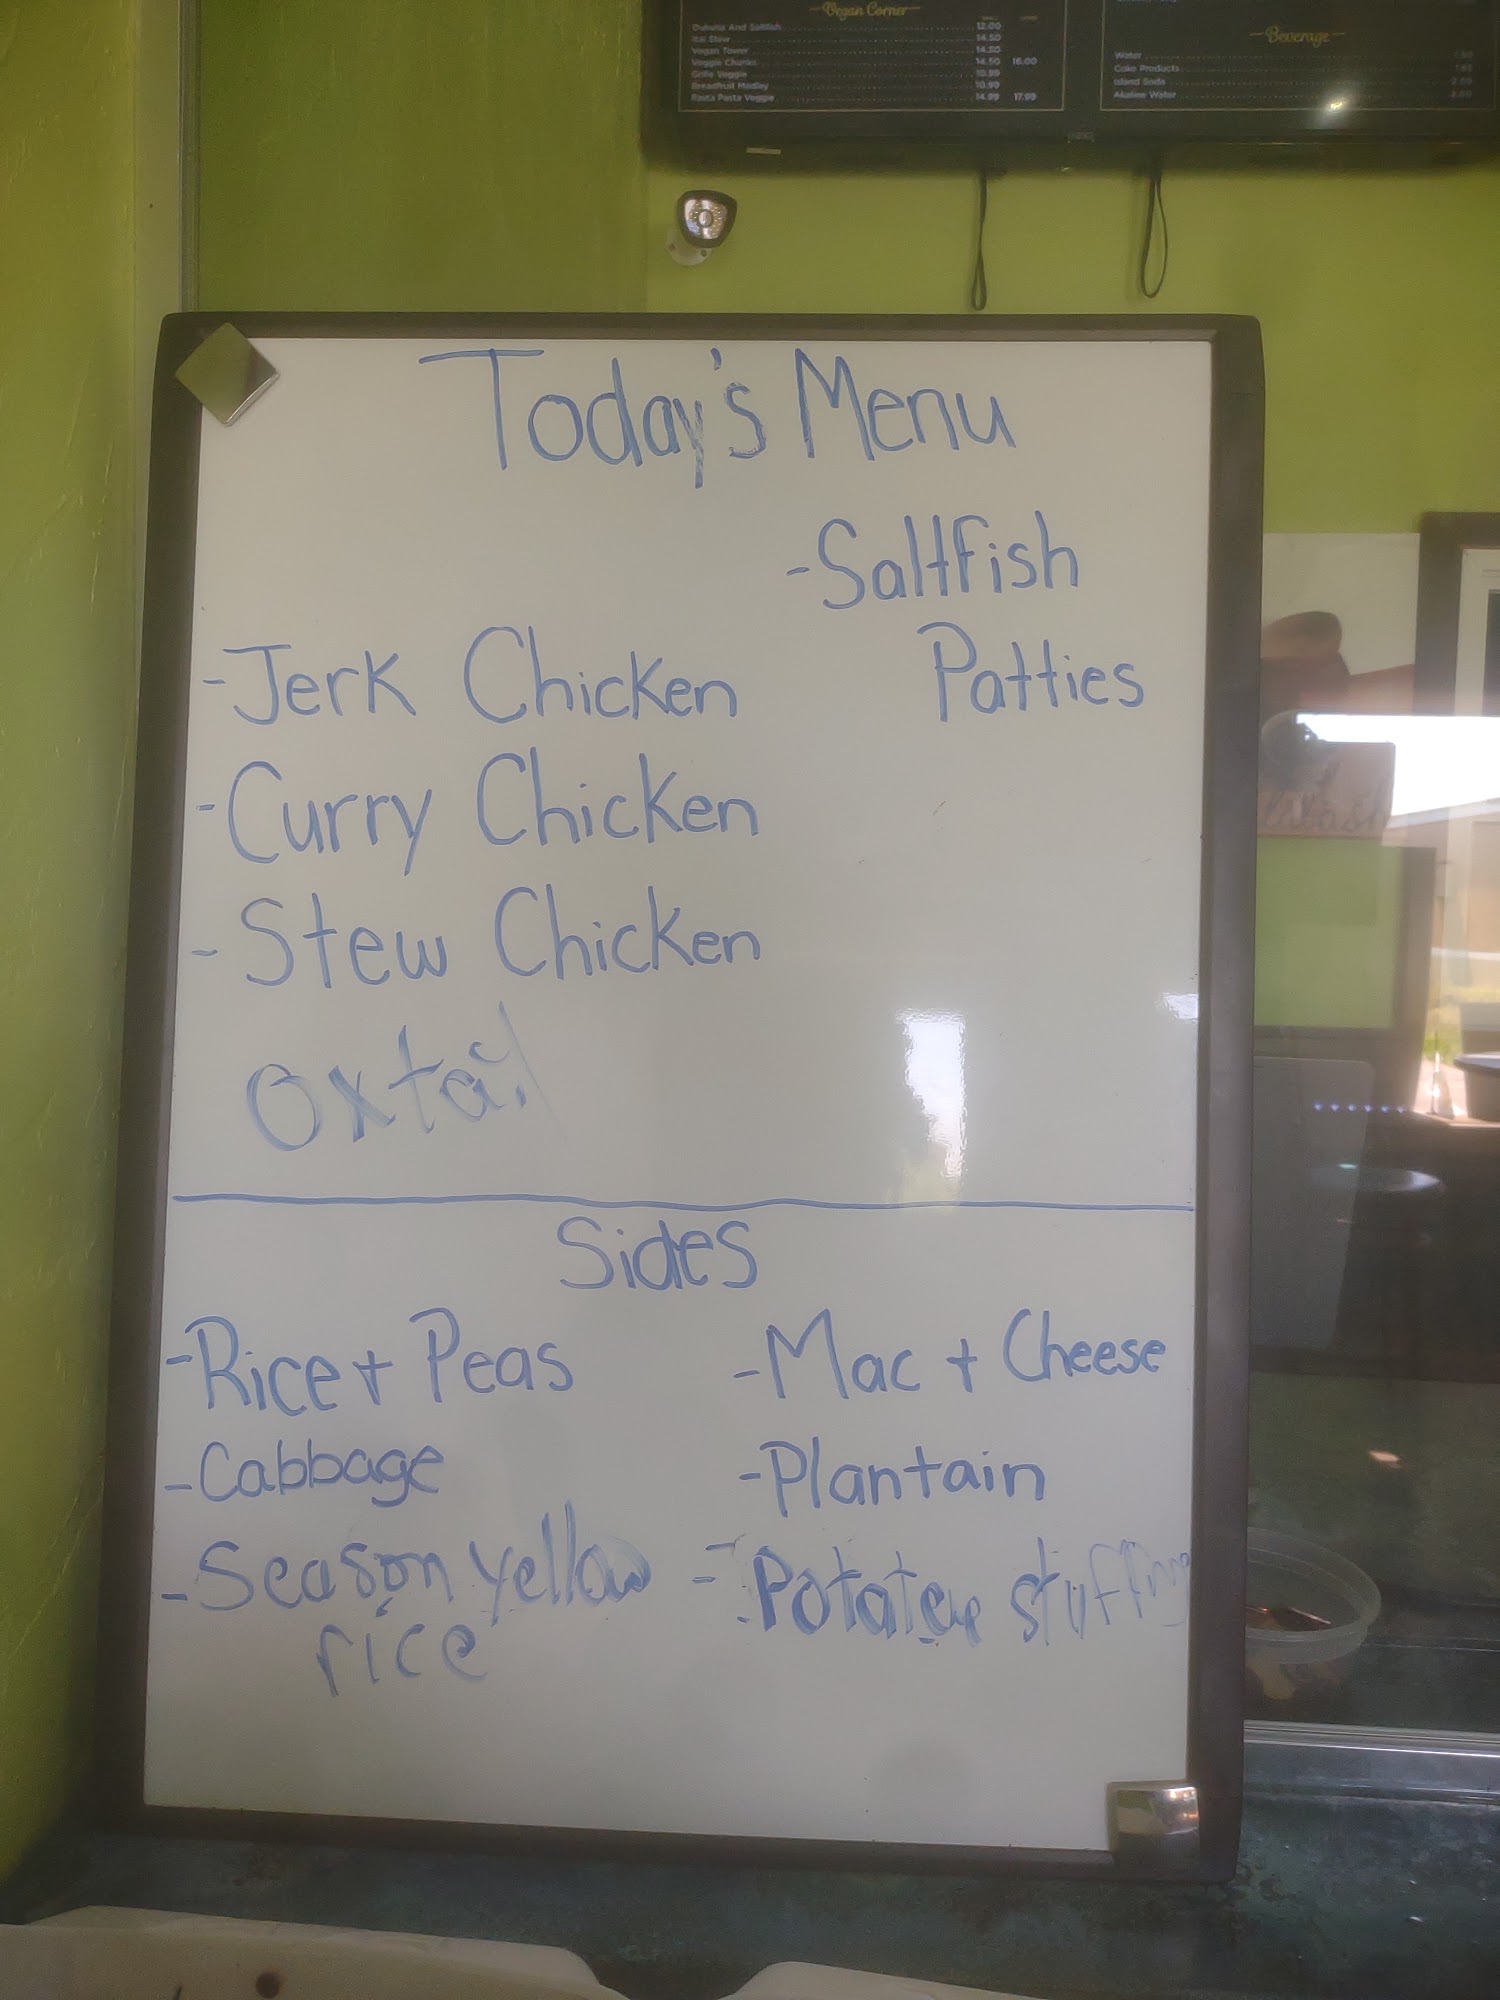 Vegan Corner
Ital Stew 14.50
Vegan Tower 14.50
Veggie Chunks 14.50 16.00
Grille Veggie 10.99
Breadfruit Medley 10.90
Rasta Pasta Veggie 14.99 17.99
Beverage
Water
Coke Products
Island Soda
Alkaline Water
Today's Menu
-Saltfish
Patties
-Jerk Chicken
-Curry Chicken
-Stew Chicken
oxtail
Sides
-Rice + Peas
-Mac + Cheese
-Cabbage
-Plantain
-Season yellow
rice
-Potatoe stuffing